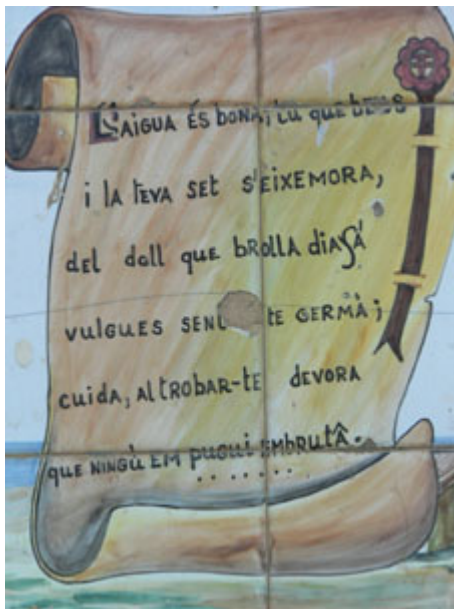 L'AIGUA ÉS BONA; TU QUE BEUS
I LA TEVA SET S'EIXEMORA,
DEL DOLL QUE BROLLA DIASÁ
VULGUES TE GERMÀ;
CUIDA, AL TROBAR-TE DEVORA
QUE NINGÙ EM PUGUI EMBRUTÂ.